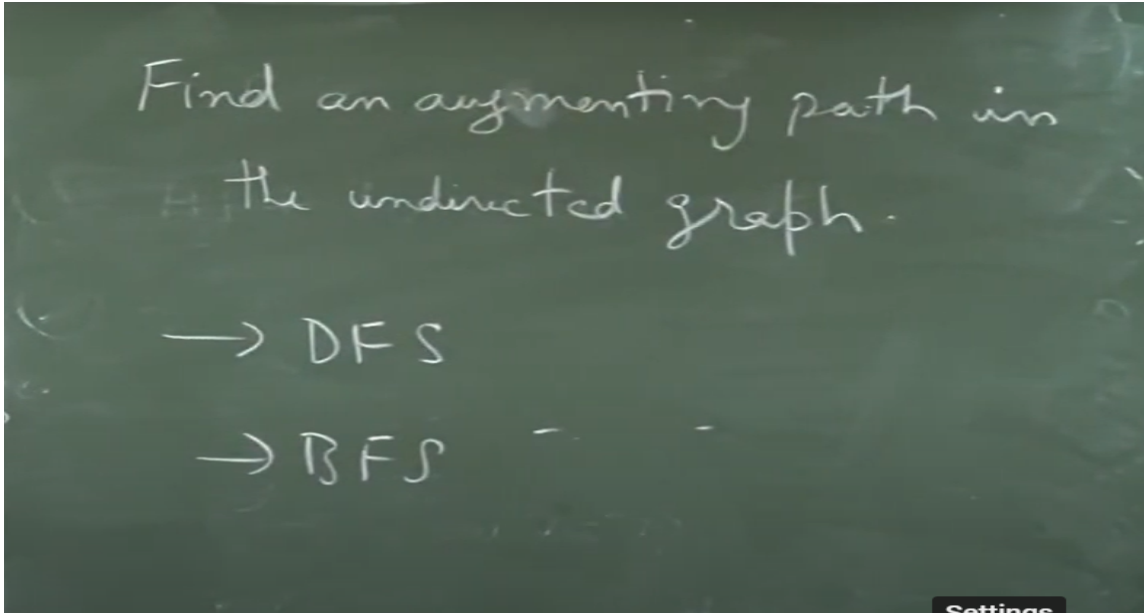 Find an augmenting path in
the undirected graph.
→ DFS
→ BFS
Settings